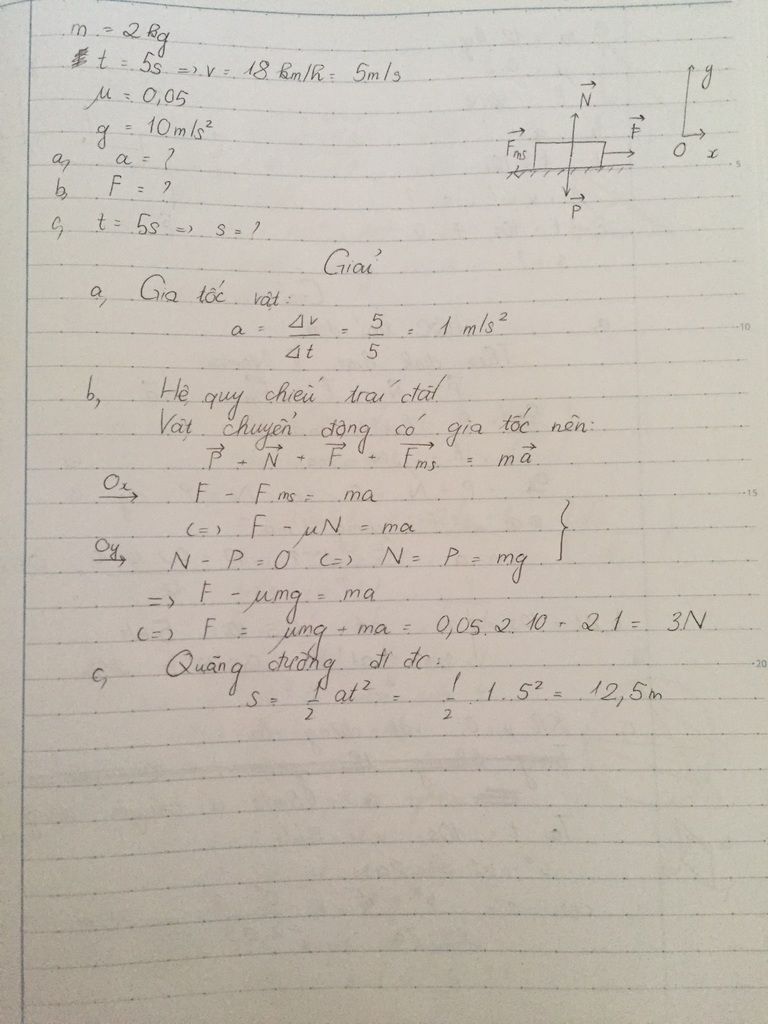 m = 2 kg
t = 5s => v = 18 km/h = 5m/s
μ = 0,05
g = 10m/s²
a, a = ?
b, F = ?
c, t = 5s => s = ?
N
F
Fms
P
y
O x
Giải
a, Gia tốc vật:
a = Δv/Δt = 5/5 = 1 m/s²
b, Hệ quy chiếu trái đất
Vật chuyển động có gia tốc nên:
P + N + F + Fms = ma
Ox F - Fms = ma
<=> F - μN = ma
Oy N - P = 0 <=> N = P = mg
=> F - μmg = ma
<=> F = μmg + ma = 0,05.2.10 + 2.1 = 3N
c, Quãng đường đi đc:
s = 1/2 at² = 1/2 . 1 . 5² = 12,5m
5
10
15
20